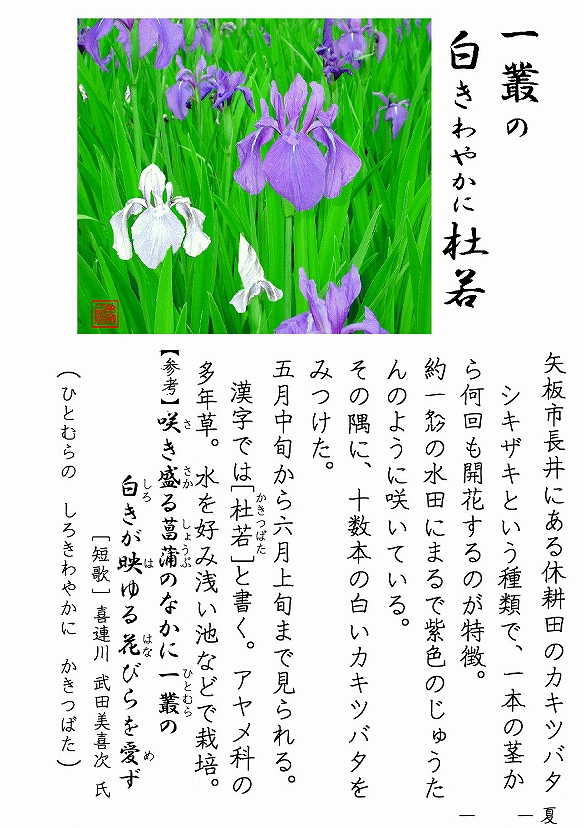 一叢の
白きわやかに杜若
矢板市長井にある休耕田のカキツバタ
シキザキという種類で、一本の茎か
ら何回も開花するのが特徴。
約一㌶の水田にまるで紫色のじゅうた
んのように咲いている。
その隅に、十数本の白いカキツバタを
みつけた。
五月中旬から六月上旬まで見られる。
漢字では[杜若]と書く。アヤメ科の
多年草。水を好み浅い池などで栽培。
【参考】咲き盛る菖蒲のなかに一叢の
白きが映ゆる花びらを愛ず
[短歌]喜連川 武田美喜次 氏
(ひとむらの しろきわやかに かきつばた)
―夏―